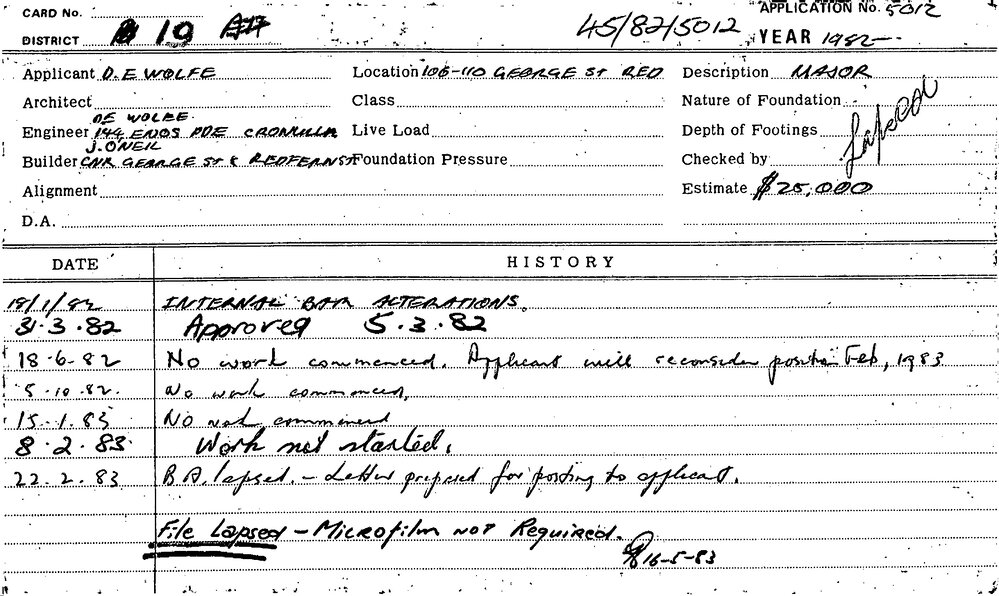 CARD No. APPLICATION No. 5012
DISTRICT 10 45/82/5012 YEAR 1982
Applicant D. E WOLFE Location 106-110 GEORGE ST RED Description MAJOR
Architect Class Nature of Foundation
DE WOLFE
Engineer 144 ENOS PDE CRONULLA Live Load Depth of Footings Lapsed
J. O'NEIL
Builder CNR GEORGE ST & REDFERN ST Foundation Pressure Checked by
Alignment Estimate $25,000
D.A.
DATE HISTORY
18/1/82 INTERNAL BAR ALTERATIONS.
31.3.82 Approved 5.3.82
18-6-82 No work commenced. Applicant will reconsider position Feb, 1983
5-10-82. No work commenced.
15.1.83 No work commenced
8.2.83. Work not started.
22.2.83 B.A. lapsed. - Letter prepared for posting to applicant.
File Lapsed - Microfilm NOT Required.
16-5-83